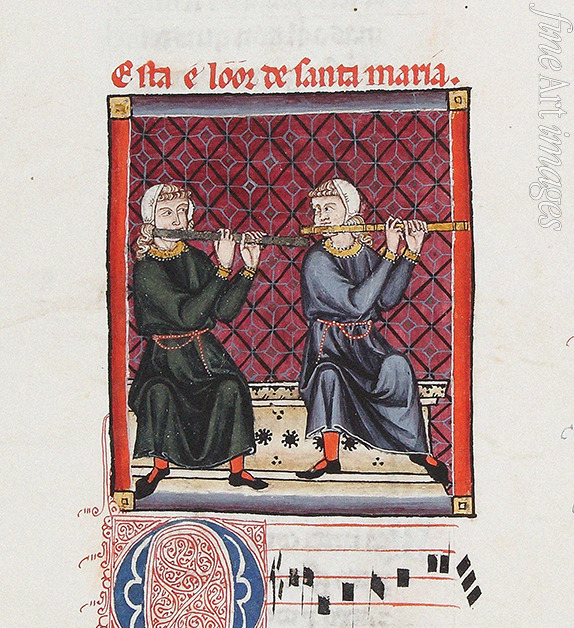 Esta é lóor de santa maria.
fineArtimages
O